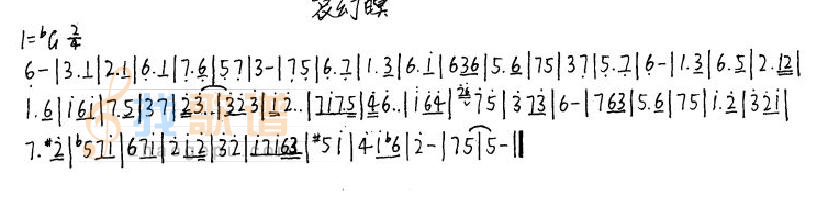 1=♭G 2/4
6-|3.1|2.1|6.1|7.6|57|3-|75|6.7|1.3|6.i|636|5.6|75|37|5.7|6-|1.3|6.5|2.12|
1.6|i6i|7.5|37|23..|323|12..|7i75|46..|i64|75|373|6-|763|5.6|75|i.2|32i|
7.#2|♭57i|67i|2i2|32|i7i63|#5i|4i♭6|2-|75|5-‖
找歌谱